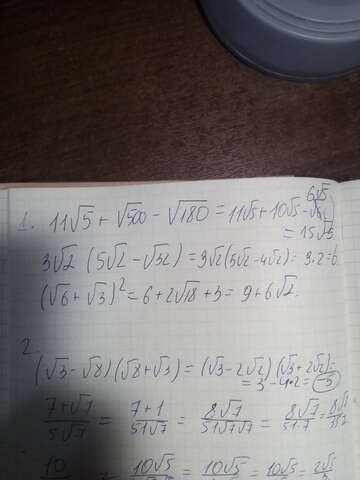 1. 11√5 + √500 - √180 = 11√5 + 10√5 - 6√5
= 15√5.
3√2 (5√2 - √32) = 3√2 (5√2 - 4√2) = 3·2 = 6
(√6 + √3)² = 6 + 2√18 + 3 = 9 + 6√2.
2.
(√3 - √8)(√8 + √3) = (√3 - 2√2)(√3 + 2√2) =
= 3 - 4·2 = -5
7+√7 / 5√7 = 7+1 / 5√7 = 8√7 / 5√7√7 = 8√7 / 5·7 = 8√7 / 35
10 = 10√5 = 10√5 = 10√5 = 2√5